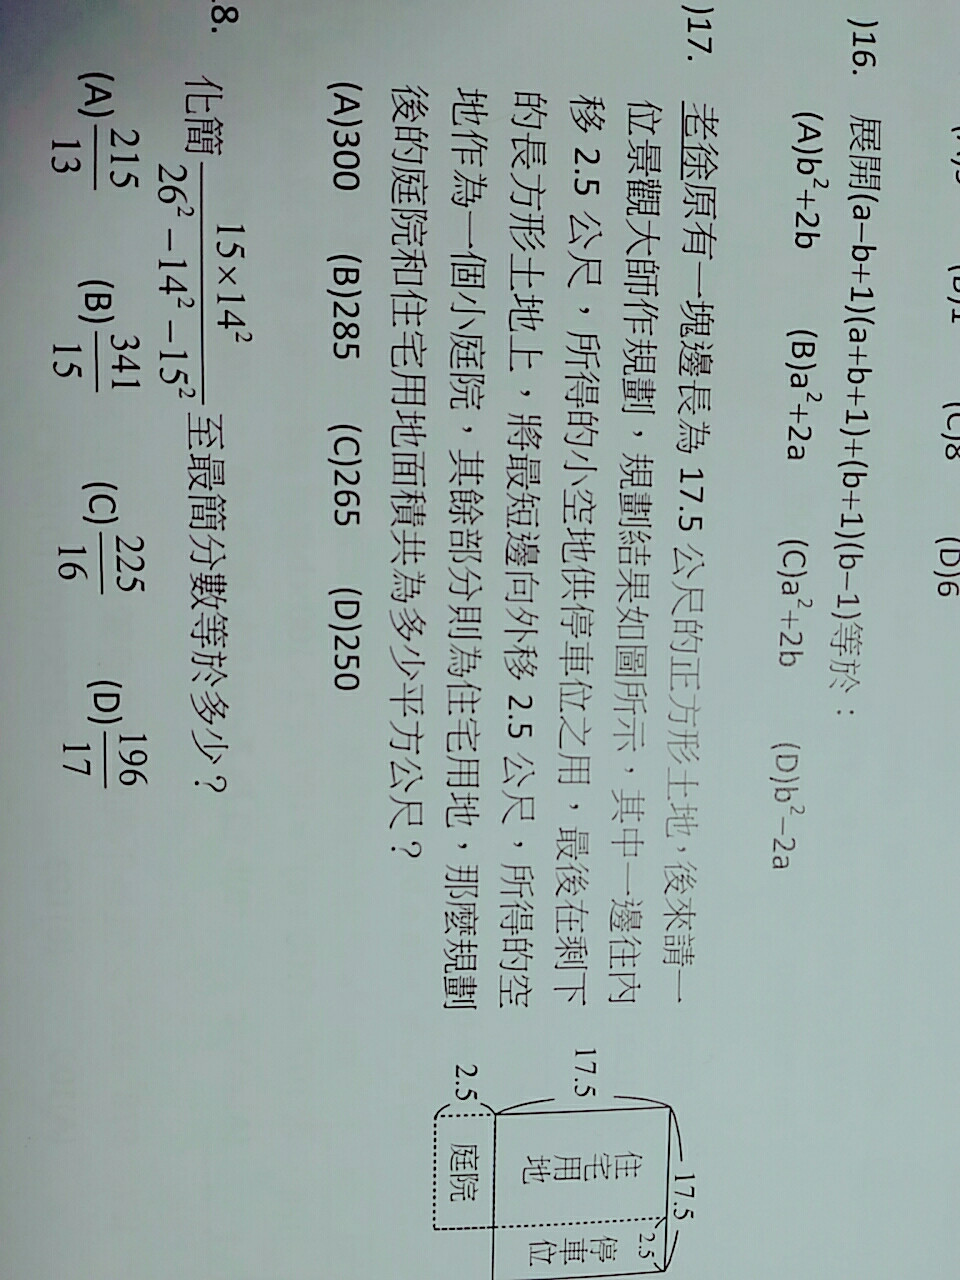 (D)1 (C)8 (D)6
)16. 展開(a−b+1)(a+b+1)+(b+1)(b−1)等於：
(A)b²+2b (B)a²+2a (C)a²+2b (D)b²−2a
)17. 老徐原有一塊邊長為 17.5 公尺的正方形土地，後來請一
位景觀大師作規劃，規劃結果如圖所示，其中一邊往內
移 2.5 公尺，所得的小空地供停車位之用，最後在剩下
的長方形土地上，將最短邊向外移 2.5 公尺，所得的空
地作為一個小庭院，其餘部分則為住宅用地，那麼規劃
後的庭院和住宅用地面積共為多少平方公尺？
(A)300 (B)285 (C)265 (D)250
17.5
2.5
17.5
住宅用地
停車位
2.5
庭院
8. 化簡 15×14²/26²−14²−15² 至最簡分數等於多少？
(A)215/13 (B)341/15 (C)225/16 (D)196/17